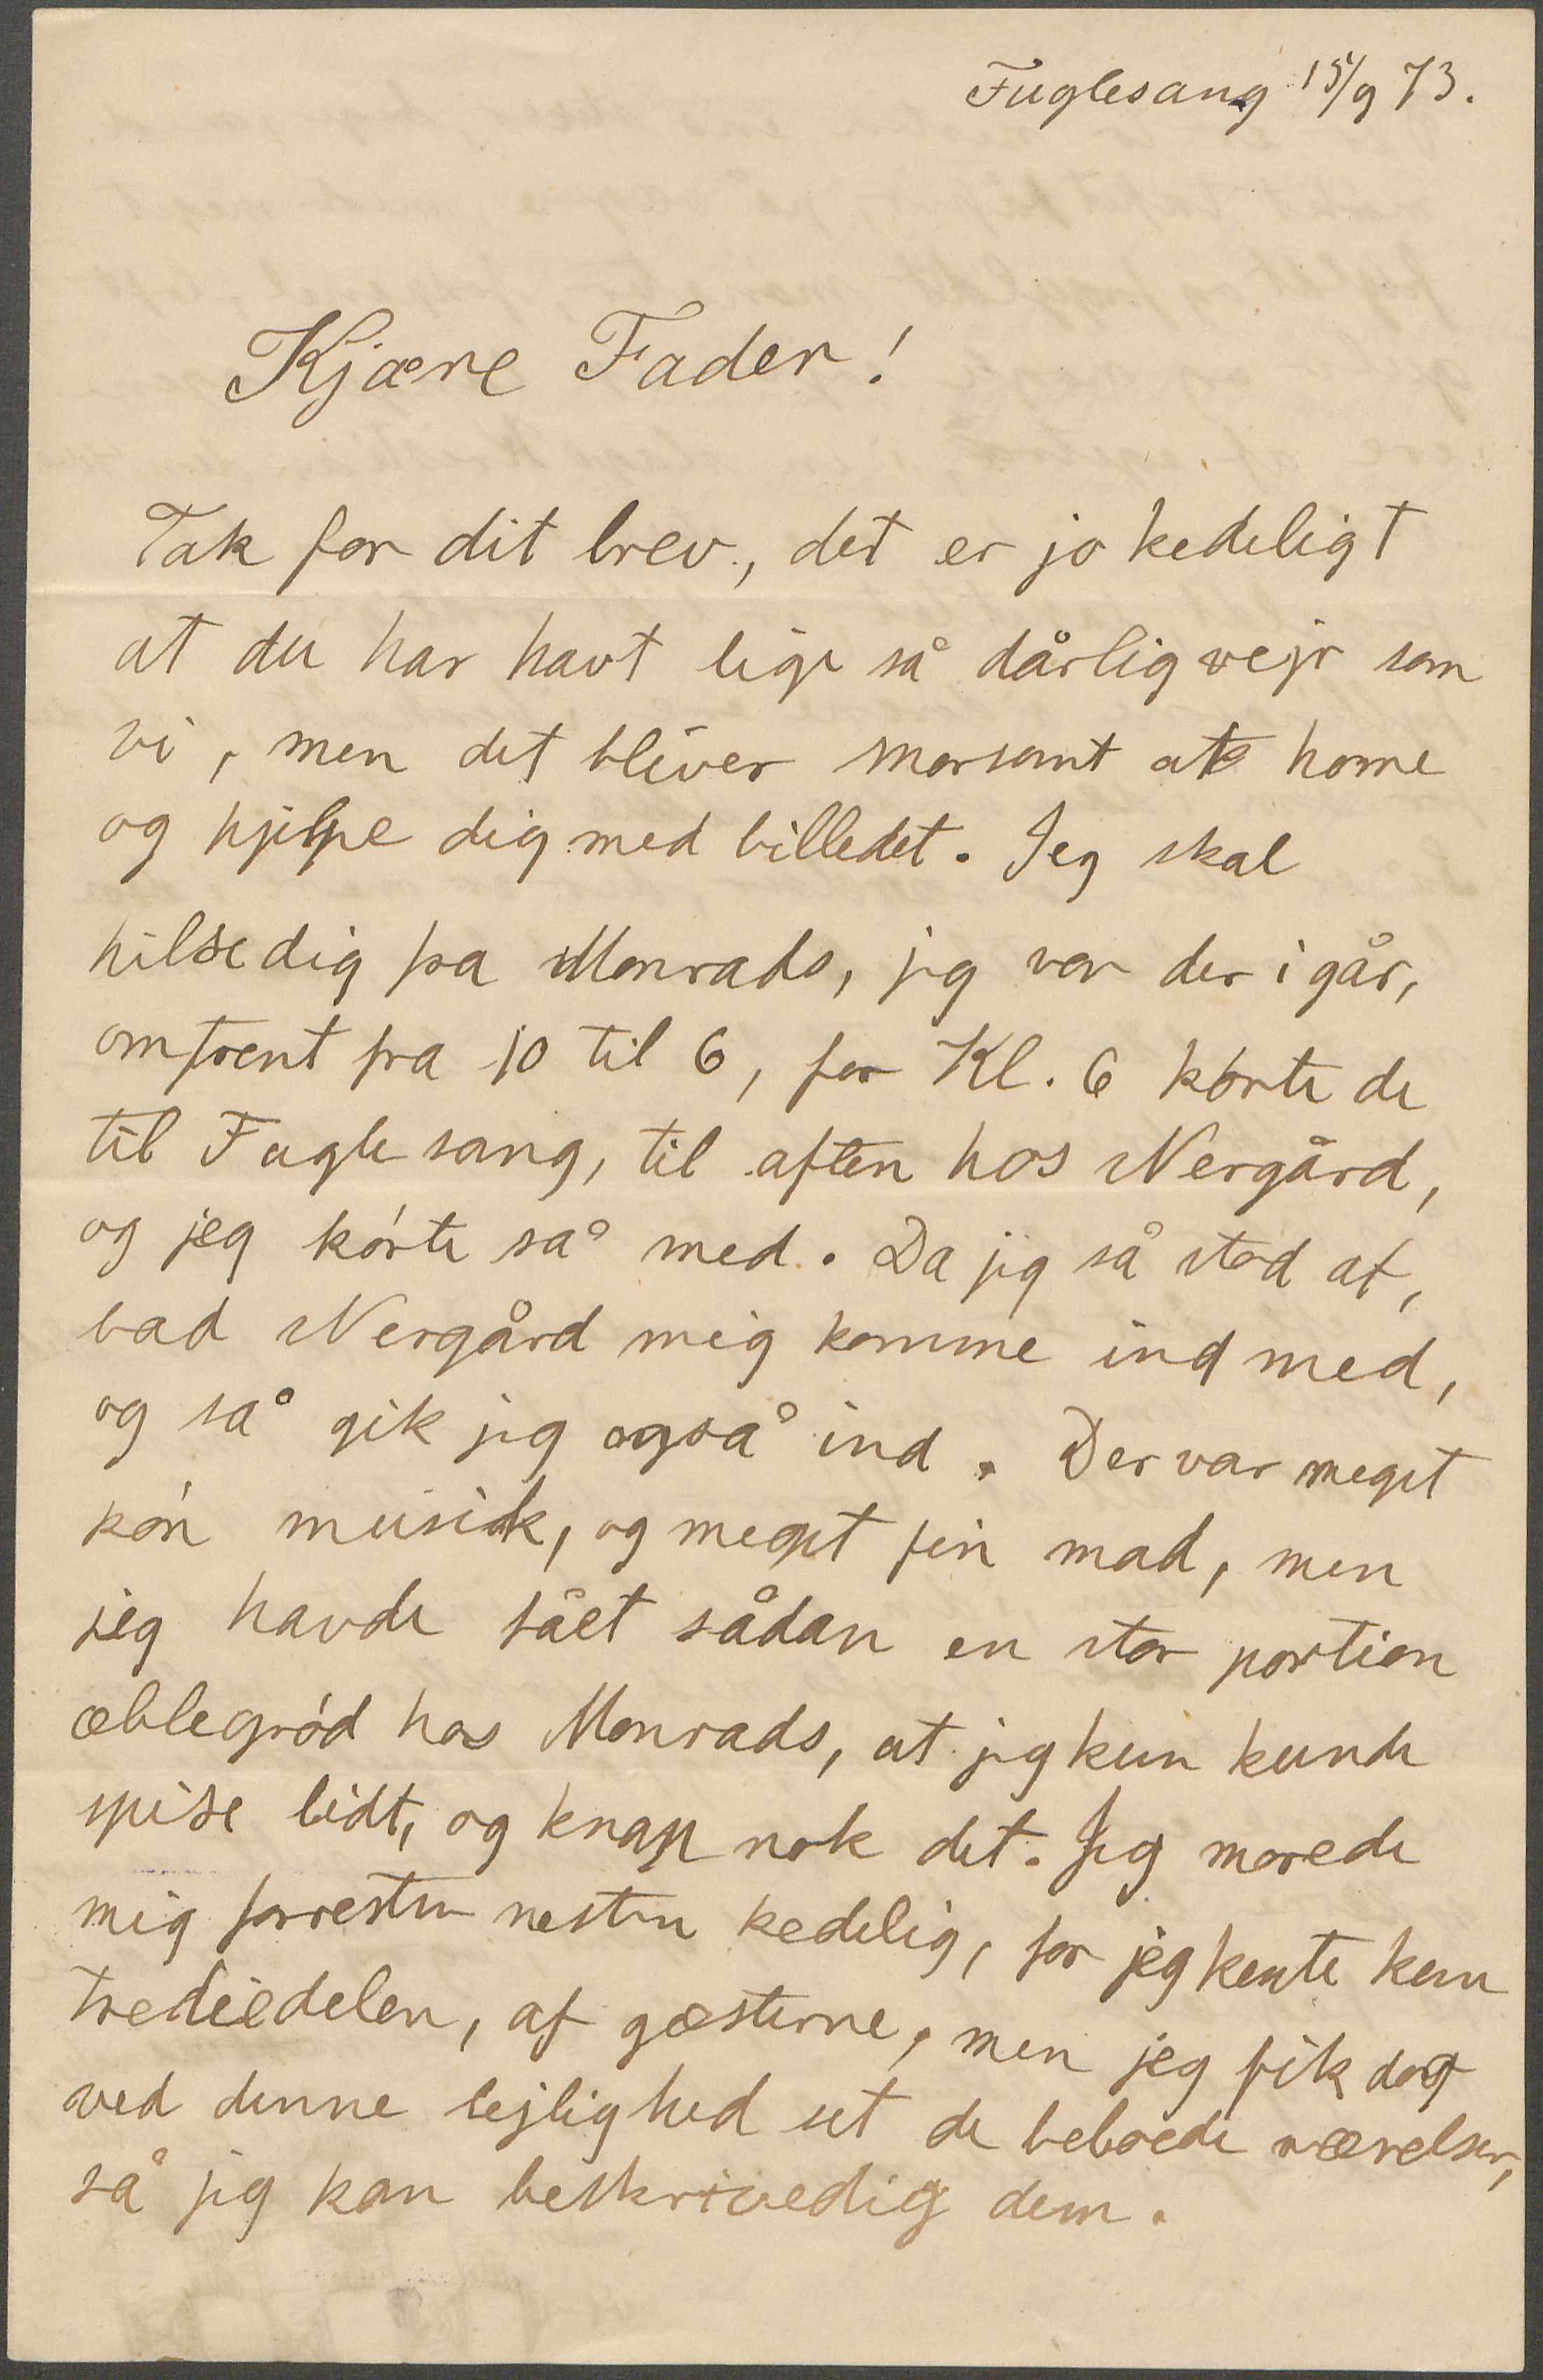 Fuglesang 15/9 73.
Kjære Fader!
Tak for dit brev, det er jo kedeligt
at du har havt lige så dårlig vejr som
vi, men det bliver morsomt at kome
og hjelpe dig med billedet. Jeg skal
hilse dig fra Monrads, jeg var der i går,
omtrent fra 10 til 6, for Kl. 6 kørte de
til Fuglesang, til aften hos Nergård,
og jeg kørte så med. Da jeg så stod af,
bad Nergård mig komme ind med,
og så gik jeg også ind. Der var meget
køn musik, og meget fin mad, men
jeg havde fået sådan en stor portion
æblegrød hos Monrads, at jeg kun kunde
spise lidt, og knap nok det. Jeg morede
mig forresten nesten kedelig, for jeg kente kun
trediedelen, af gæsterne, men jeg fik dog
ved denne lejlighed set de beboede værelser,
så jeg kan beskrive dig dem.